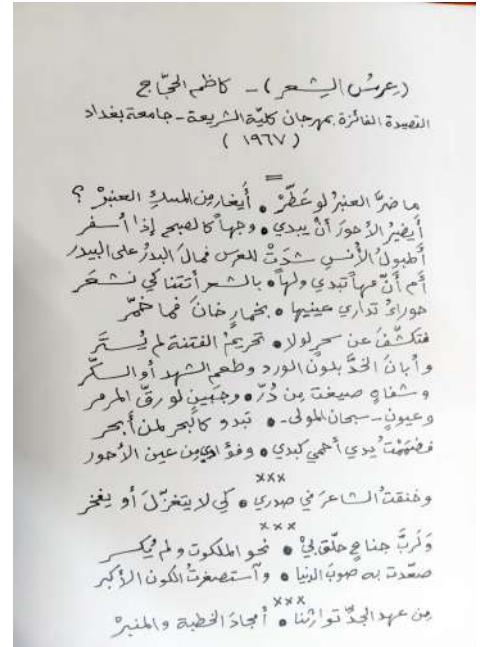 (عرسُ الشِعر) - كاظم الحجّاج
القصيدة الفائزة بمهرجان كليّة الشريعة - جامعة بغداد
(١٩٦٧)
=
ما ضرَّ العنبرُ لو عَطَّرْ • أيغار من المسكِ العنبرْ ؟
أيضيرُ الأحورَ أنْ يبدي • وجهاً كالصبحِ إذا أسفر
أطبولُ الأُنسِ شدَتْ للعرس فمالَ البدرُ على البيدر
أم أنّ مهاً تبدي ولهاً • بالشعر أتتنا كي نشعَر
حوراءُ تداري عينيها • بخمارٍ خانَ فما خمّر
فتكشّفَ عن سحرٍ لولا • تحريمُ الفتنة لم يُستَر
وأبانَ الخدَّ بلونِ الورد وطعمِ الشهد أو السكّر
وشفاهٍ صيغت من دُرّ • وجبينٍ لو رقَّ المرمر
وعيونٍ - سبحان المولى - • تبدو كالبحر لمن أبحر
فضممْتُ يدي أحمي كبدي • وفؤادي من عين الأحور
×××
وخنقتُ الشاعرَ في صدري • كي لا يتغزّلَ أو يفخر
×××
وَلَربَّ جناحٍ حلّق بيْ • نحو الملكوت ولم يُكسر
صعّدت به صوبَ الدنيا • وآستصغرتُ الكون الأكبر
×××
من عهد الجدِّ توارثنا • أمجادَ الخطبة والمنبرْ